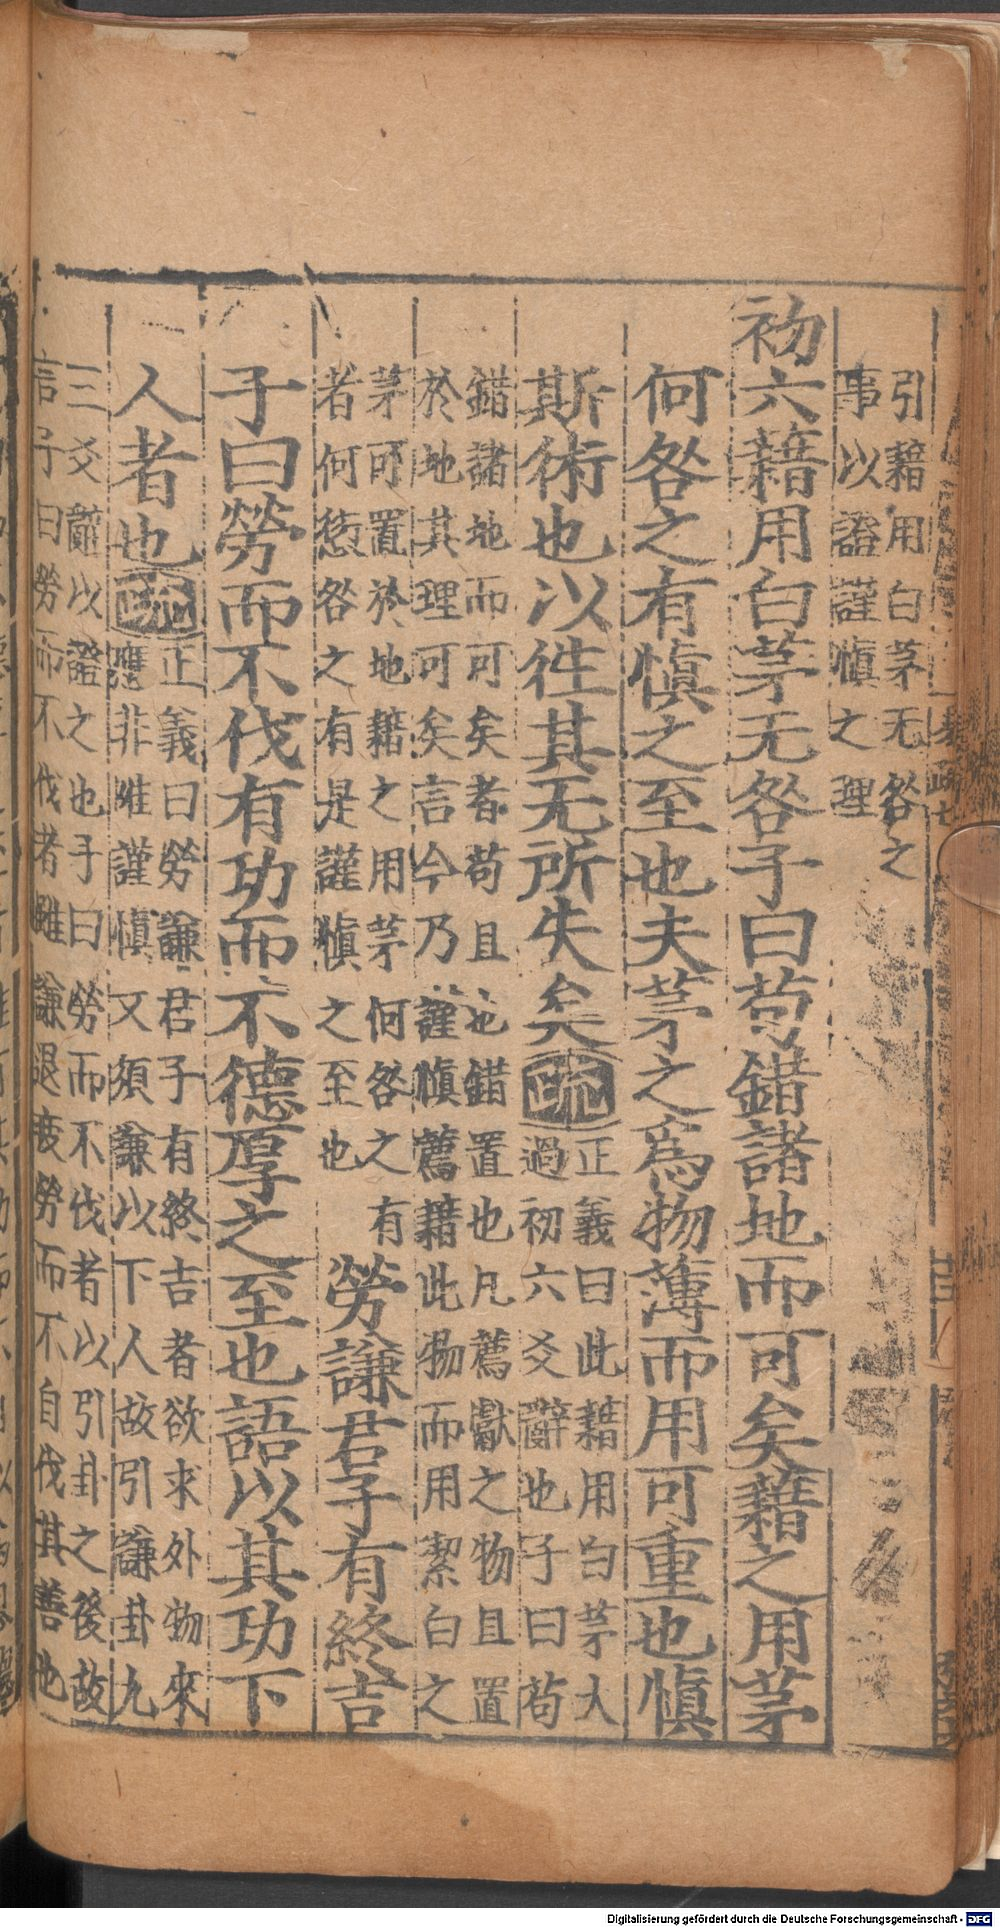 引藉用白茅无咎之
事以證謹慎之理
初六藉用白茅无咎子曰苟錯諸地而可矣藉之用茅
何咎之有慎之至也夫茅之為物薄而用可重也慎
斯術也以徃其无所失矣疏
正義曰此藉用白茅大
過初六爻辭也子曰苟
錯諸地而可矣者苟且也錯置也凡薦獻之物且置
於地其理可矣言今乃謹慎薦藉此物而用絜白之
茅可置於地藉之用茅何咎之有
者何愆咎之有是謹慎之至也
勞謙君子有終吉
子曰勞而不伐有功而不德厚之至也語以其功下
人者也疏
正義曰勞謙君子有終吉者欲求外物來
應非唯謹慎又須謙以下人故引謙卦九
三爻辭以證之也子曰勞而不伐者以引卦之後故
言子曰勞而不伐者雖謙退疲勞而不自伐其善也
Digitalisierung gefördert durch die Deutsche Forschungsgemeinschaft - DFG